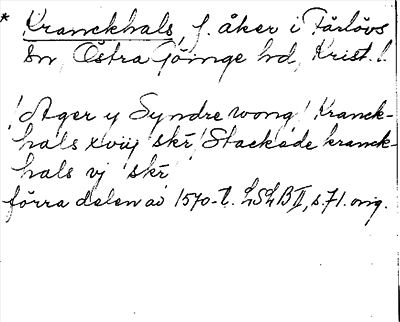 * Kranckhals, f. åker i Färlövs
Sn, Östra Göinge hd, Krist. l.
/Ager y Syndre wong/ Kranck-
hals xviij skr /Stackade kranck-
hals vj skr
förra delen av 1570-t. LSLB II, s. 71. orig.